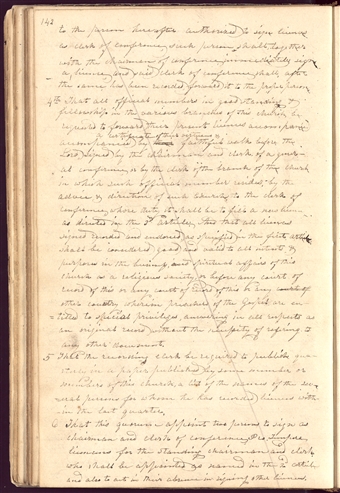 142
to the person hereafter authorized to sign licenses
as clerk of conference, such person shall, together
with the chairman of conference immediately sign
a license, and said clerk of conference shall, after
the same has been recorded forward it to the proper person.
4th That all official members in good standing &
fellowship in the various branches of this church, be
required to forward their present licenses
accompanied by faithful walk before the
Lord, signed by the chairman and clerk of a
conference, or by the clerk of the branch of the church
in which such official member resides, by the
advice & direction of such to the clerk of
conference, whose duty it shall be to fill a new
as directed in the article. And that all licenses
signed, recorded and endorsed as specified in the first article
shall be considered good and valid to all intents &
purposes in the business and spiritual affairs of this
church as a religious society, or before any court of
record of this or any
other country wherein preachers of the Gospel are en-
titled to special privileges, answering in all respects as
an original record without the necessity of refering to
any other document.
5 That the recording clerk be required to publish qua-
terly in a paper published by some member or
members of this church, a list of the names of the sev-
eral persons for whom he has recorded licenses with-
in the last quarter.
6 That this quorum appoint two persons to sign as
chairman and clerk of conference
licenses for the standing chairman and clerk
who shall be appointed as named in the article
and also to act in their absence in signing other licenses